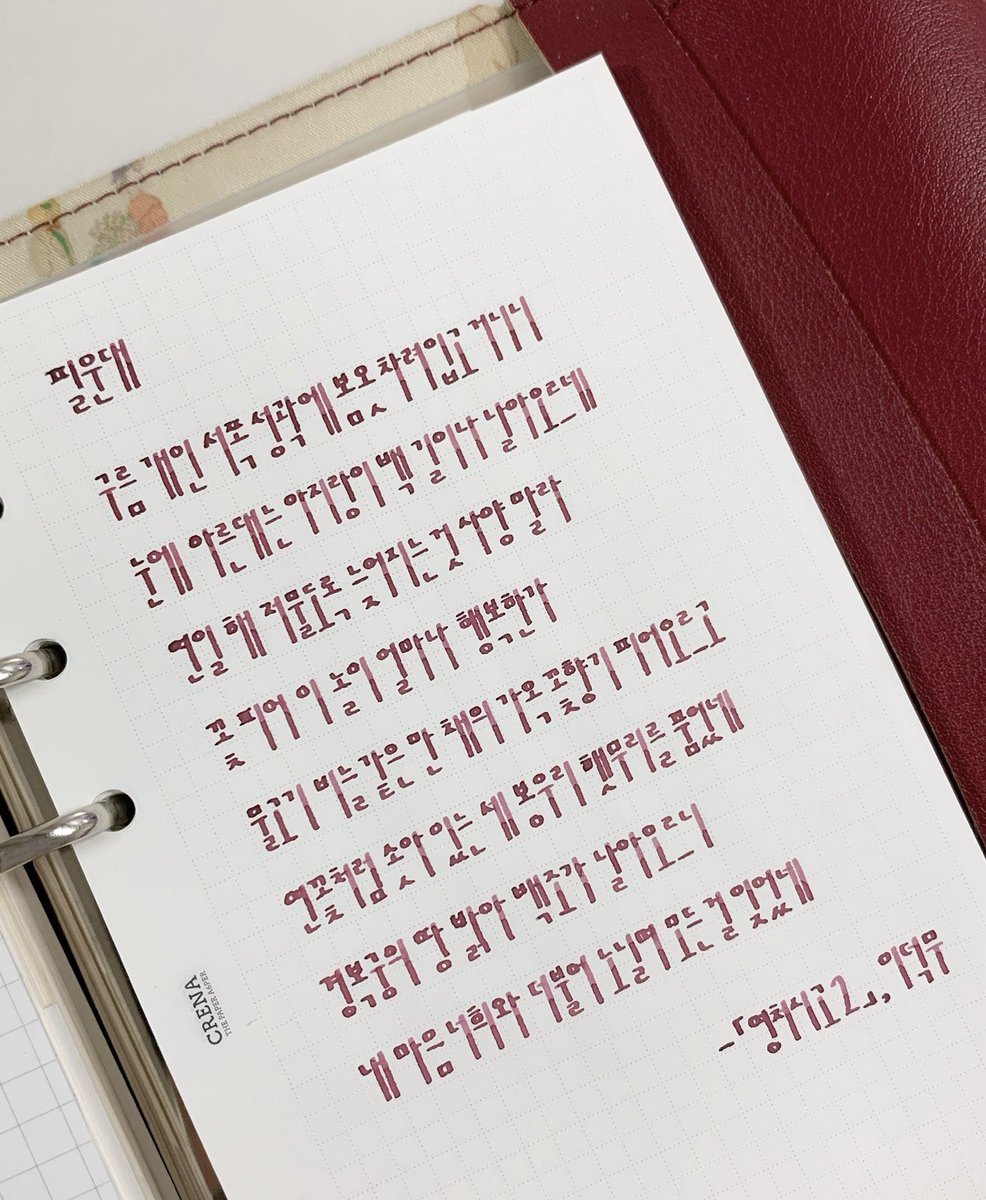 필운대
구름 개인 서쪽 성곽에 봄옷 차려입고 거니니
눈에 아른대는 아지랑이 백 길이나 날아오르네
연일 해 저물도록 늦어지는 것 사양 말라
꽃 피어 이 놀이 얼마나 행복한가
물고기 비늘 같은 만 채의 가옥 꽃향기 피어오르고
연꽃처럼 솟아 있는 세 봉우리 햇무리를 품었네
경복궁의 땅 밝아 백조가 날아오르니
내 마음 너희와 더불어 노닐며 모든 걸 잊었네
-「영처시고2」, 이덕무
CRENA
THE PAPER